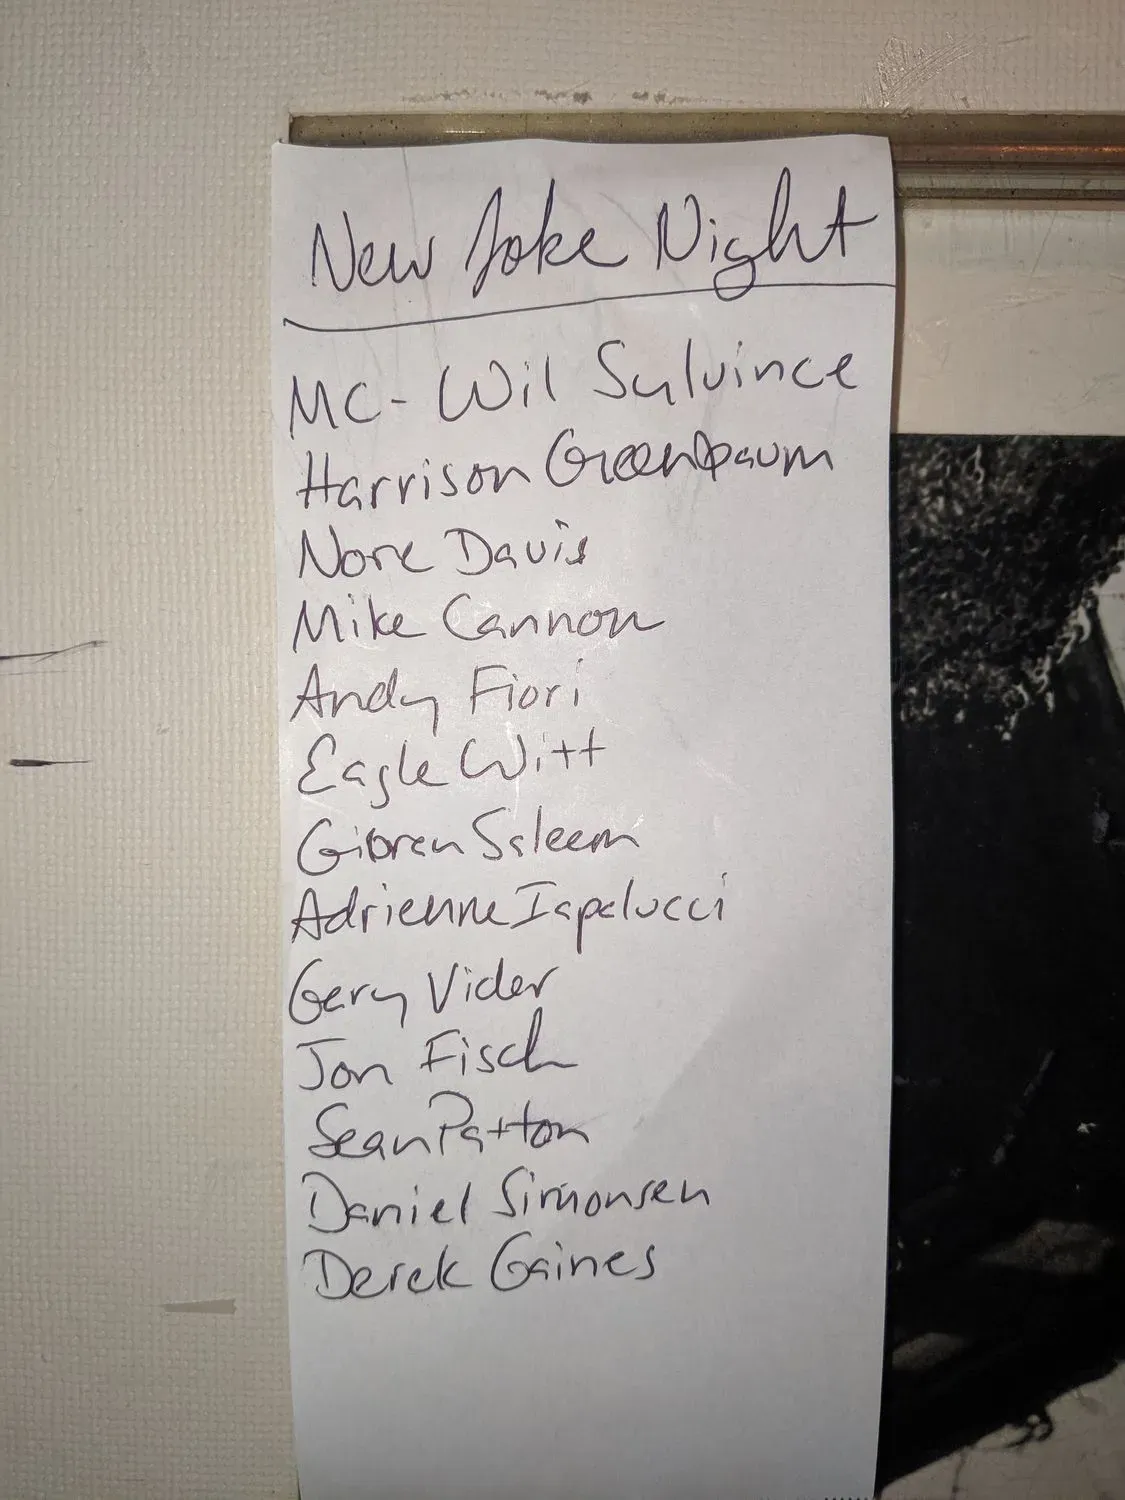 New Joke Night
MC- Wil Sylvince
Harrison Greenbaum
Nore Davis
Mike Cannon
Andy Fiori
Eagle Witt
Gibran Saleem
Adrienne Iapalucci
Gary Vider
Jon Fisch
Sean Patton
Daniel Simonsen
Derek Gaines